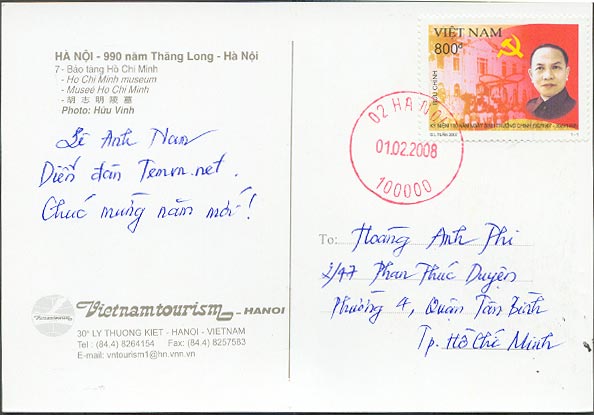 HÀ NỘI - 990 năm Thăng Long - Hà Nội
7 - Bảo tàng Hồ Chí Minh
- Ho Chi Minh museum
- Museé Ho Chi Minh
- 胡志明陵墓
Photo: Hữu Vinh
Lê Anh Nam
Diễn đàn Temvn.net.
Chúc mừng năm mới!
Vietnamtourism - HANOI
30ᴬ LY THUONG KIET - HANOI - VIETNAM
Tel : (84.4) 8264154 Fax: (84.4) 8257583
E-mail: vntourism1@hn.vnn.vn
VIỆT NAM
800đ
BƯU CHÍNH
02 HA NOI
01.02.2008
100000
To: Hoàng Anh Thi
2/47 Phan Thúc Duyện
Phường 4, Quận Tân Bình
Tp. Hồ Chí Minh